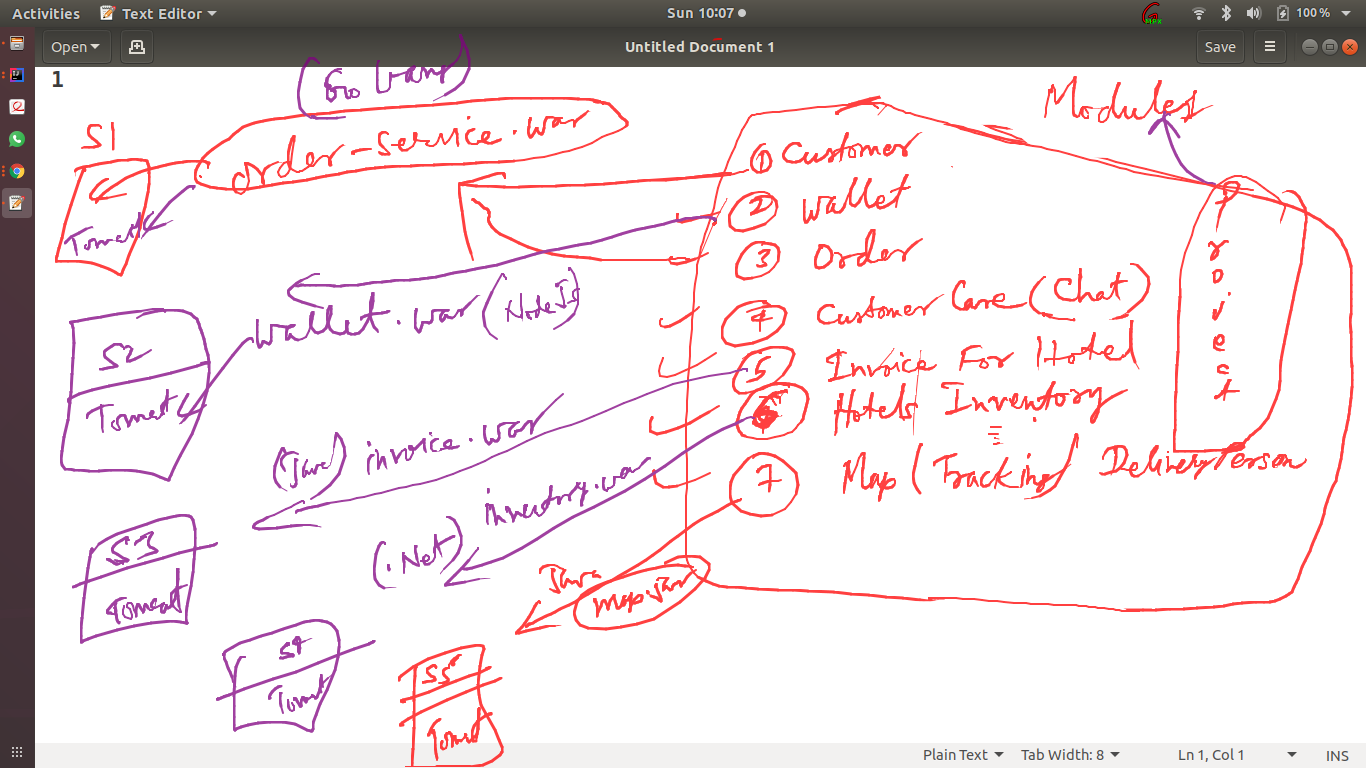 Activities Text Editor Sun 10:07 100 %
Open Untitled Document 1 Save
1
Modules
S1
order-service.war
Tomcat
① Customer
② Wallet
③ Order
④ Customer Care (Chat)
⑤ Invoice For Hotel
⑥ Hotels Inventory
⑦ Map (Tracking) Delivery Person
Project
wallet.war (NodeJs)
S2
Tomcat
(Java) invoice.war
S3
Tomcat
(.Net) inventory.war
S4
Tomcat
Java
Map.jar
S5
Tomcat
Plain Text Tab Width: 8 Ln 1, Col 1 INS